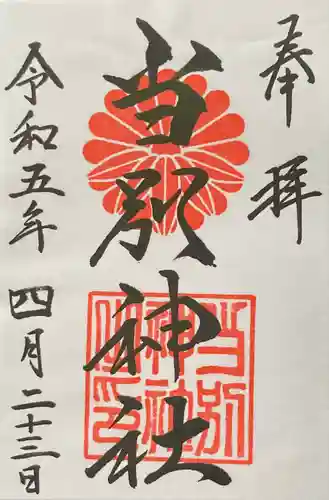 奉拝
当別神社
当別神社之印
令和五年四月二十三日